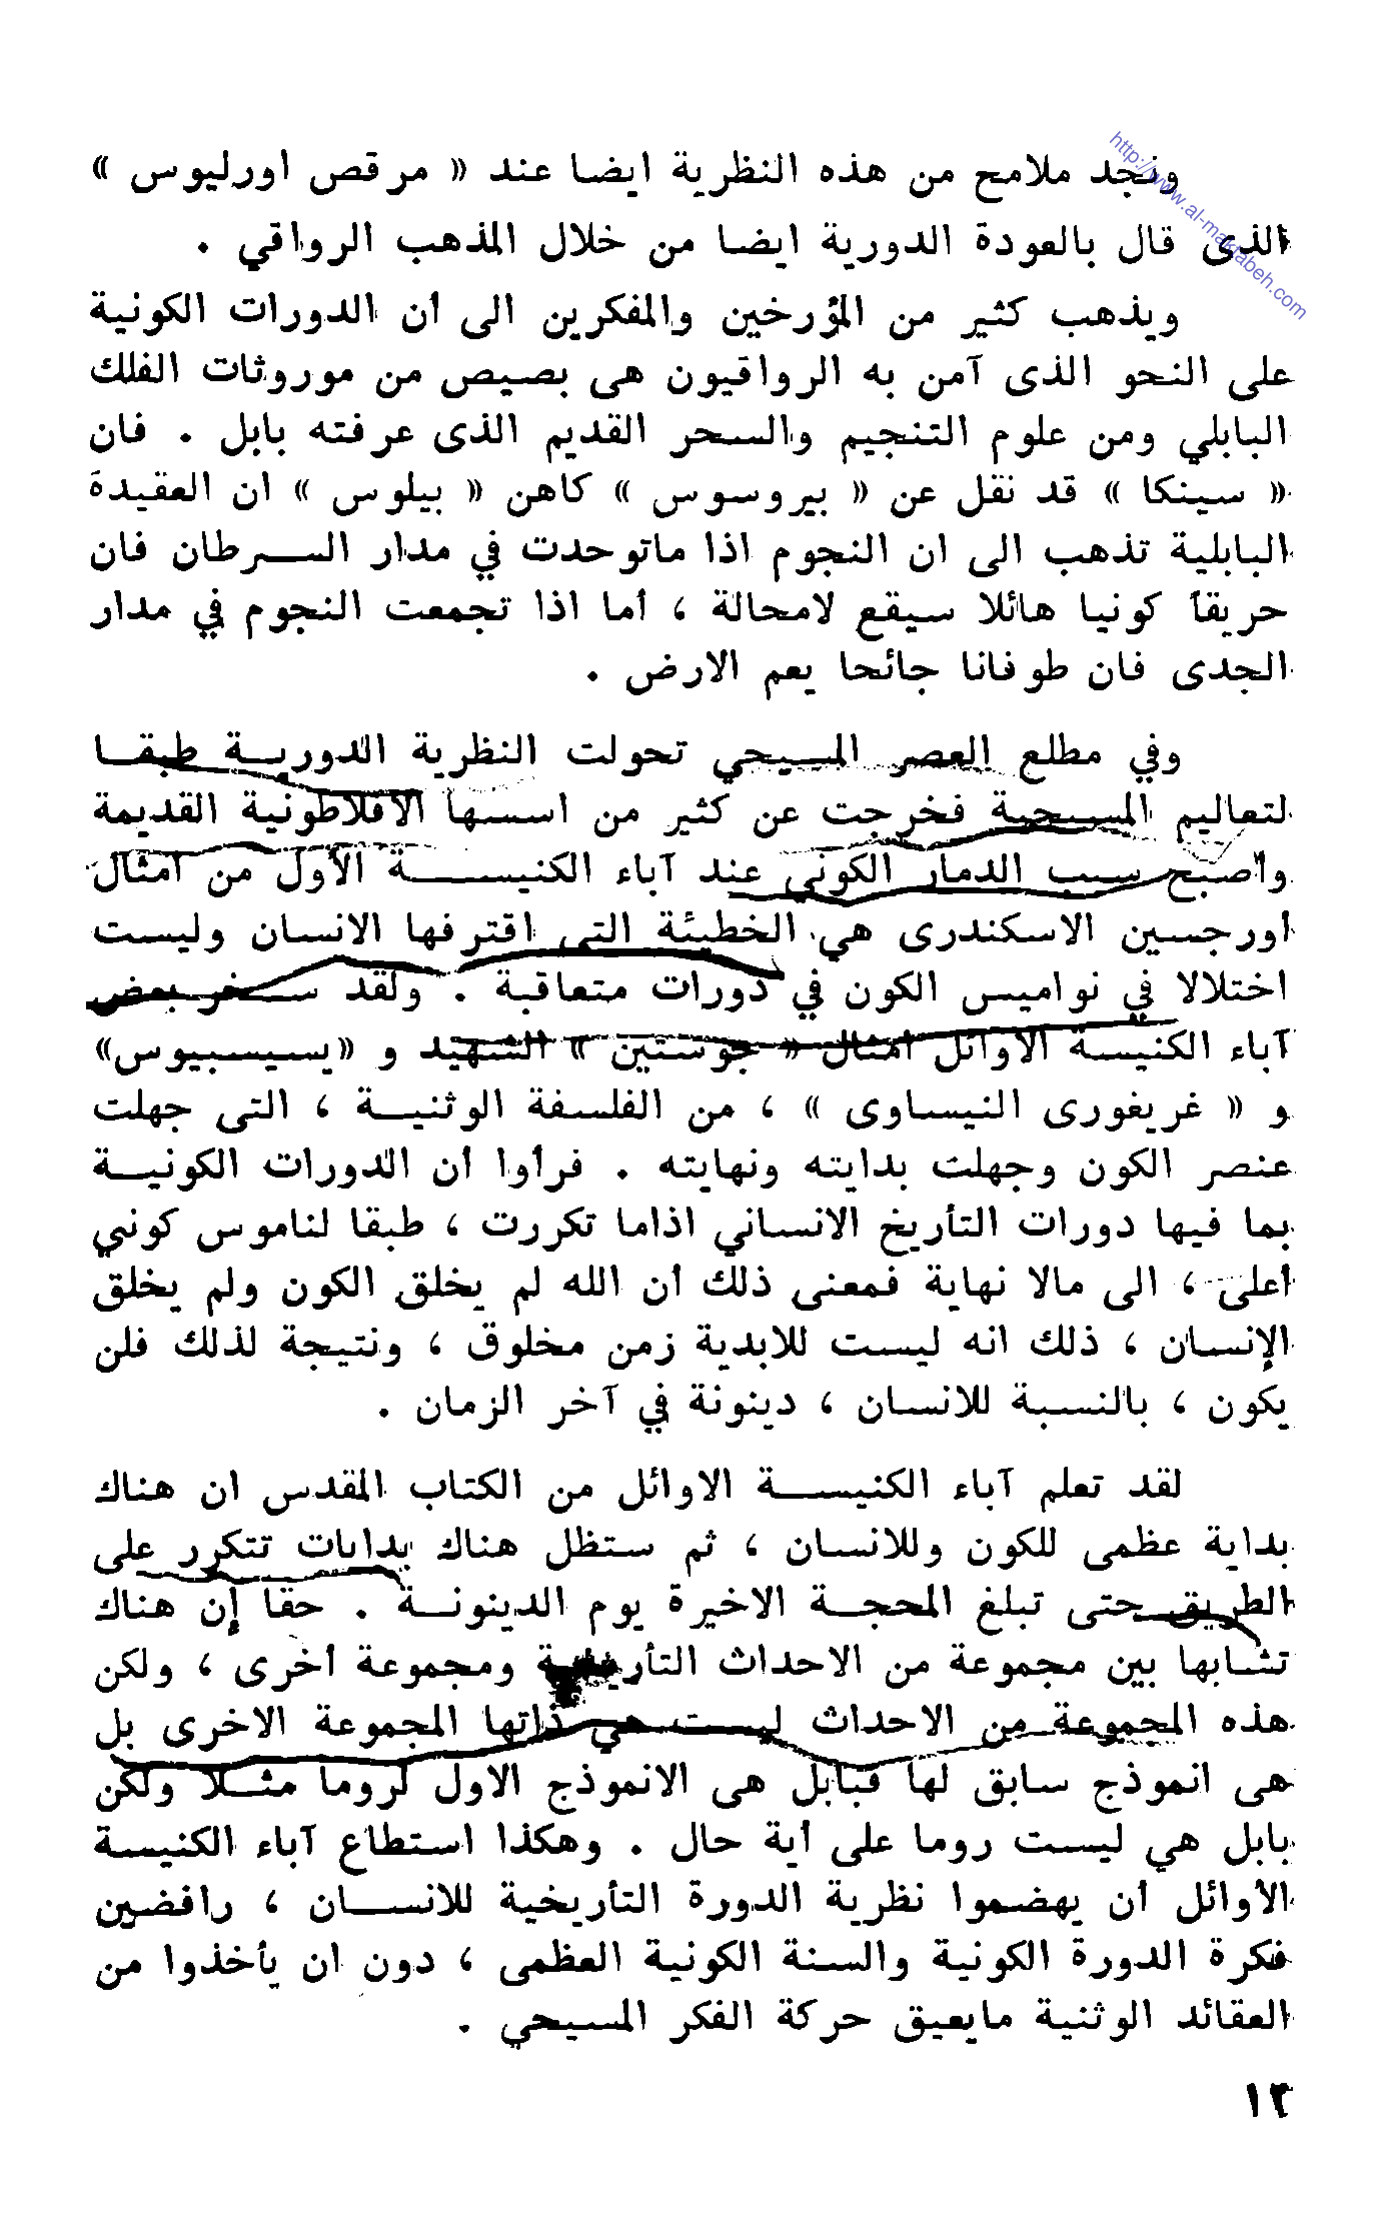 http://www.al-maktabeh.com
ونجد ملامح من هذه النظرية ايضا عند « مرقص اورليوس »
الذى قال بالعودة الدورية ايضا من خلال المذهب الرواقي .
ويذهب كثير من المؤرخين والمفكرين الى أن الدورات الكونية
على النحو الذى آمن به الرواقيون هى بصيص من موروثات الفلك
البابلي ومن علوم التنجيم والسحر القديم الذى عرفته بابل . فان
« سينكا » قد نقل عن « بيروسوس » كاهن « بيلوس » ان العقيدة
البابلية تذهب الى ان النجوم اذا ماتوحدت في مدار السرطان فان
حريقاً كونيا هائلا سيقع لامحالة ، أما اذا تجمعت النجوم في مدار
الجدى فان طوفانا جائحا يعم الارض .
وفي مطلع العصر المسيحي تحولت النظرية الدورية طبقا
لتعاليم المسيحية فخرجت عن كثير من اسسها الافلاطونية القديمة
وأصبح سبب الدمار الكوني عند آباء الكنيسة الأول من امثال
أورجسين الاسكندرى هي الخطيئة التى اقترفها الانسان وليست
اختلالا في نواميس الكون في دورات متعاقبة . ولقد سخر بعض
آباء الكنيسة الاوائل امثال « جوستين » الشهيد و «يسيسبيوس»
و « غريغورى النيساوى » ، من الفلسفة الوثنية ، التى جهلت
عنصر الكون وجهلت بدايته ونهايته . فرأوا أن الدورات الكونية
بما فيها دورات التأريخ الانساني اذاما تكررت ، طبقا لناموس كوني
أعلى ، الى مالا نهاية فمعنى ذلك أن الله لم يخلق الكون ولم يخلق
الإنسان ، ذلك انه ليست للابدية زمن مخلوق ، ونتيجة لذلك فلن
يكون ، بالنسبة للانسان ، دينونة في آخر الزمان .
لقد تعلم آباء الكنيسة الاوائل من الكتاب المقدس ان هناك
بداية عظمى للكون وللانسان ، ثم ستظل هناك بدايات تتكرر على
الطريق حتى تبلغ المحجة الاخيرة يوم الدينونة . حقا إن هناك
تشابها بين مجموعة من الاحداث التأريخية ومجموعة أخرى ، ولكن
هذه المجموعة من الاحداث ليست هي ذاتها المجموعة الاخرى بل
هى انموذج سابق لها فبابل هى الانموذج الاول لروما مثلا ولكن
بابل هي ليست روما على أية حال . وهكذا استطاع آباء الكنيسة
الأوائل أن يهضموا نظرية الدورة التأريخية للانسان ، رافضين
فكرة الدورة الكونية والسنة الكونية العظمى ، دون ان يأخذوا من
العقائد الوثنية مايعيق حركة الفكر المسيحي .
١٢